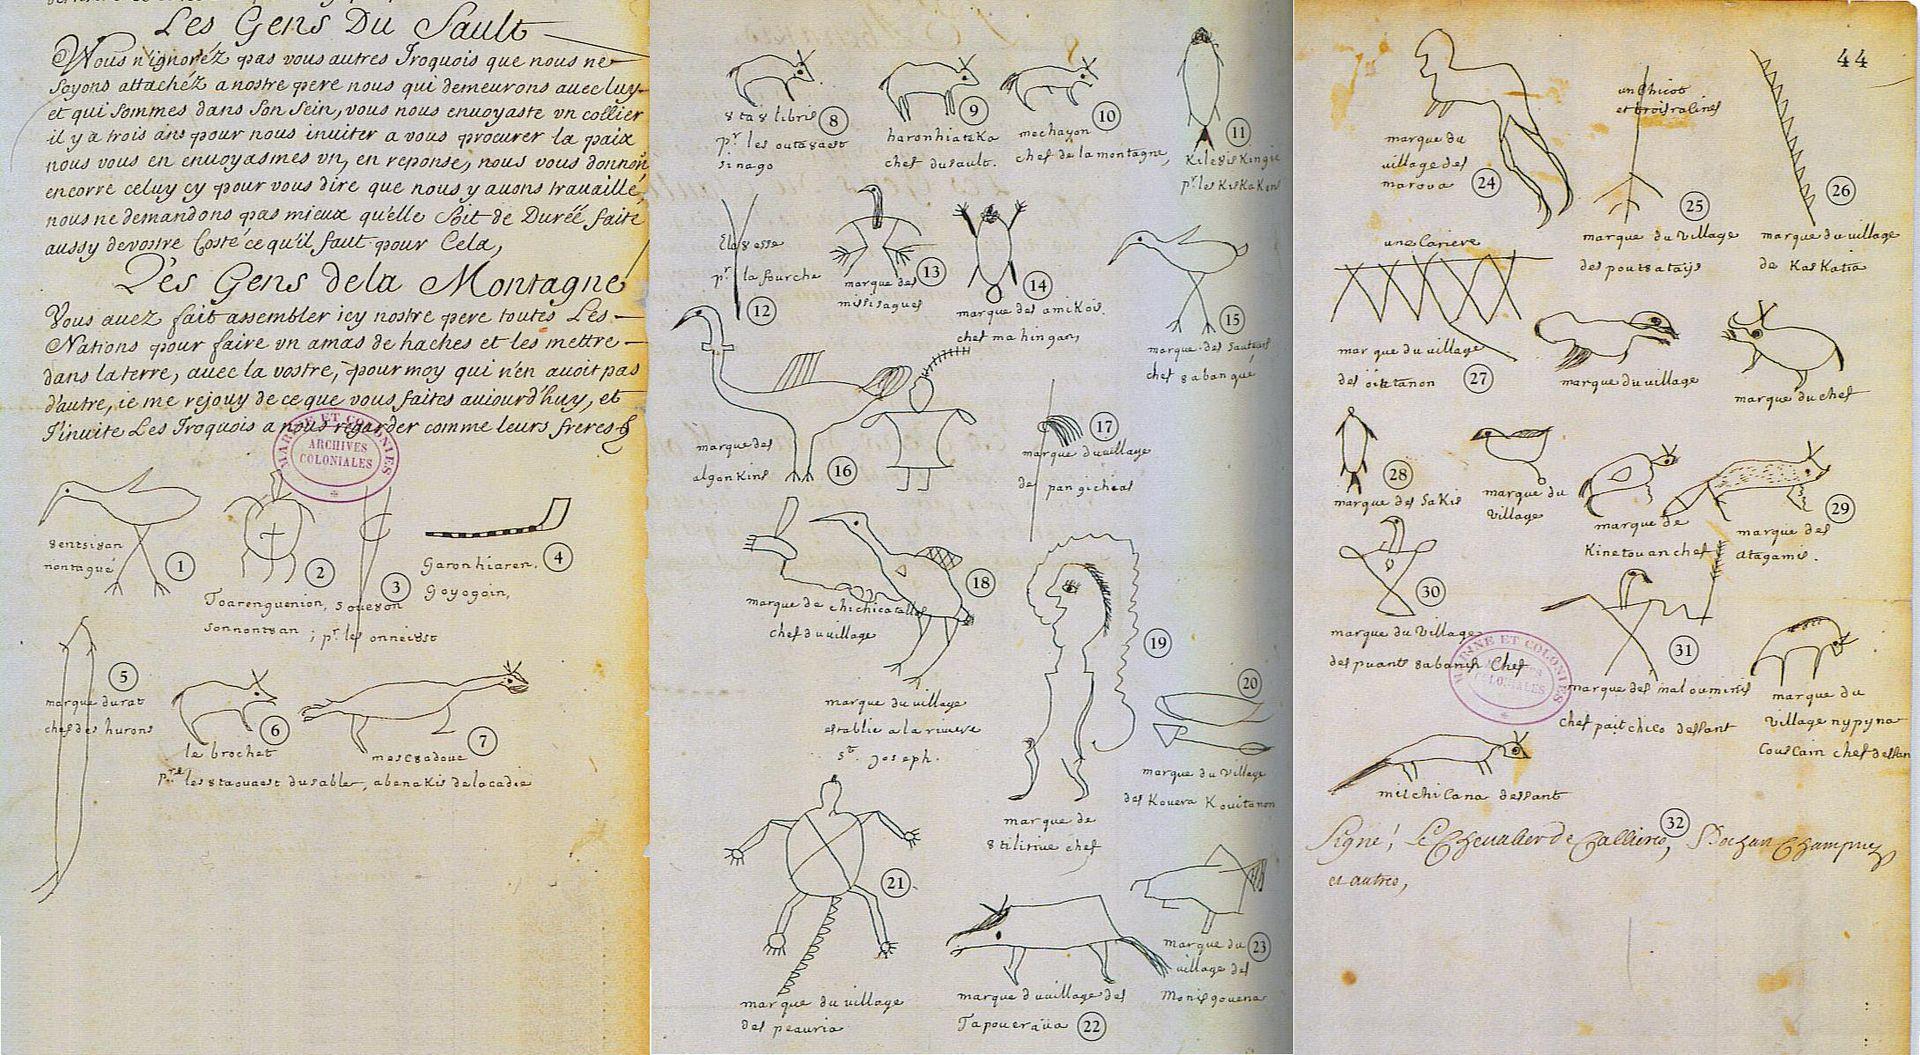 Les Gens Du Sault
Vous n'ignoréz pas vous autres Iroquois que nous ne
soyons attachéz a nostre pere nous qui demeurons avec luy
et qui sommes dans son sein, vous nous envoyaste vn collier
il y a trois ans pour nous inuiter a vous procurer la paix
nous vous en enuoyasmes vn, en reponse, nous vous donnon
encorre celuy cy pour vous dire que nous y auons trauaillé,
nous ne demandons pas mieux qu'elle soit de Duréé faite
aussy de vostre Costé ce qu'il faut pour Cela,
Les Gens de la Montagne
Vous auez fait assembler icy nostre pere toutes Les
Nations pour faire vn amas de haches et les mettre
dans la terre, auec la vostre, pour moy qui n'en auoit pas
d'autre, ie me rejouy de ce que vous faites auiourd'huy, et
J'inuite Les Iroquois a nous regarder comme leurs freres
MARINE ET COLONIES
ARCHIVES
COLONIALES
8entsi8an
nontagué
1
2
Toarenguenion,
sonnont8an
3
so8e8on
; pr. les onnei8st
4
Garonhiaren,
Goyogoin,
5
marque du rat
chef des hurons
6
le brochet
pr les 8ta8ouaest du sable,
7
mesc8adoue
abenakis de lacadie
8
8ta8libris
pr. les outa8aest
sinago
9
haronhiateka
chef du sault.
10
mechayon
chef de la montagne,
11
Kile8iskingie
pr. les KisKaKons
12
Ela8esse
pr. la fourche
13
marque des
missisagues
14
marque des amikois.
chef mahingan,
15
marque des sauteurs
chef 8abangué
16
marque des
algonkins
17
marque du village
de pangicheas
18
marque de chichicatalle
chef du village
marque du village
establie a la riviere
st. Joseph.
19
marque de
8tilirine chef
20
marque du village
des Kouera Kouitanon
21
marque du village
des peauria
22
marque du village des
Tapouaroua
23
marque du
village des
Monisgouena
44
24
marque du
village des
maroua
un chicot
et trois racines
25
marque du village
des pout8ata8is
26
marque du village
de KasKatia
une Cariere
27
marque du village
des 8iatanon
marque du village
marque du chef
28
marque des Sakis
marque du
village
marque de
Kinetouan chef
29
marque des
8tagamis.
30
marque du village
des puants 8abansh Chef
31
marque des malouminis
chef paitchico dessant
marque du
village nypyna
Couscam chef dessan
MARINE ET COLONIES
COLONIALES
32
mitchilana dessant
Signé; Le Chevalier de Callieres, Bochart Champigny
et autres,